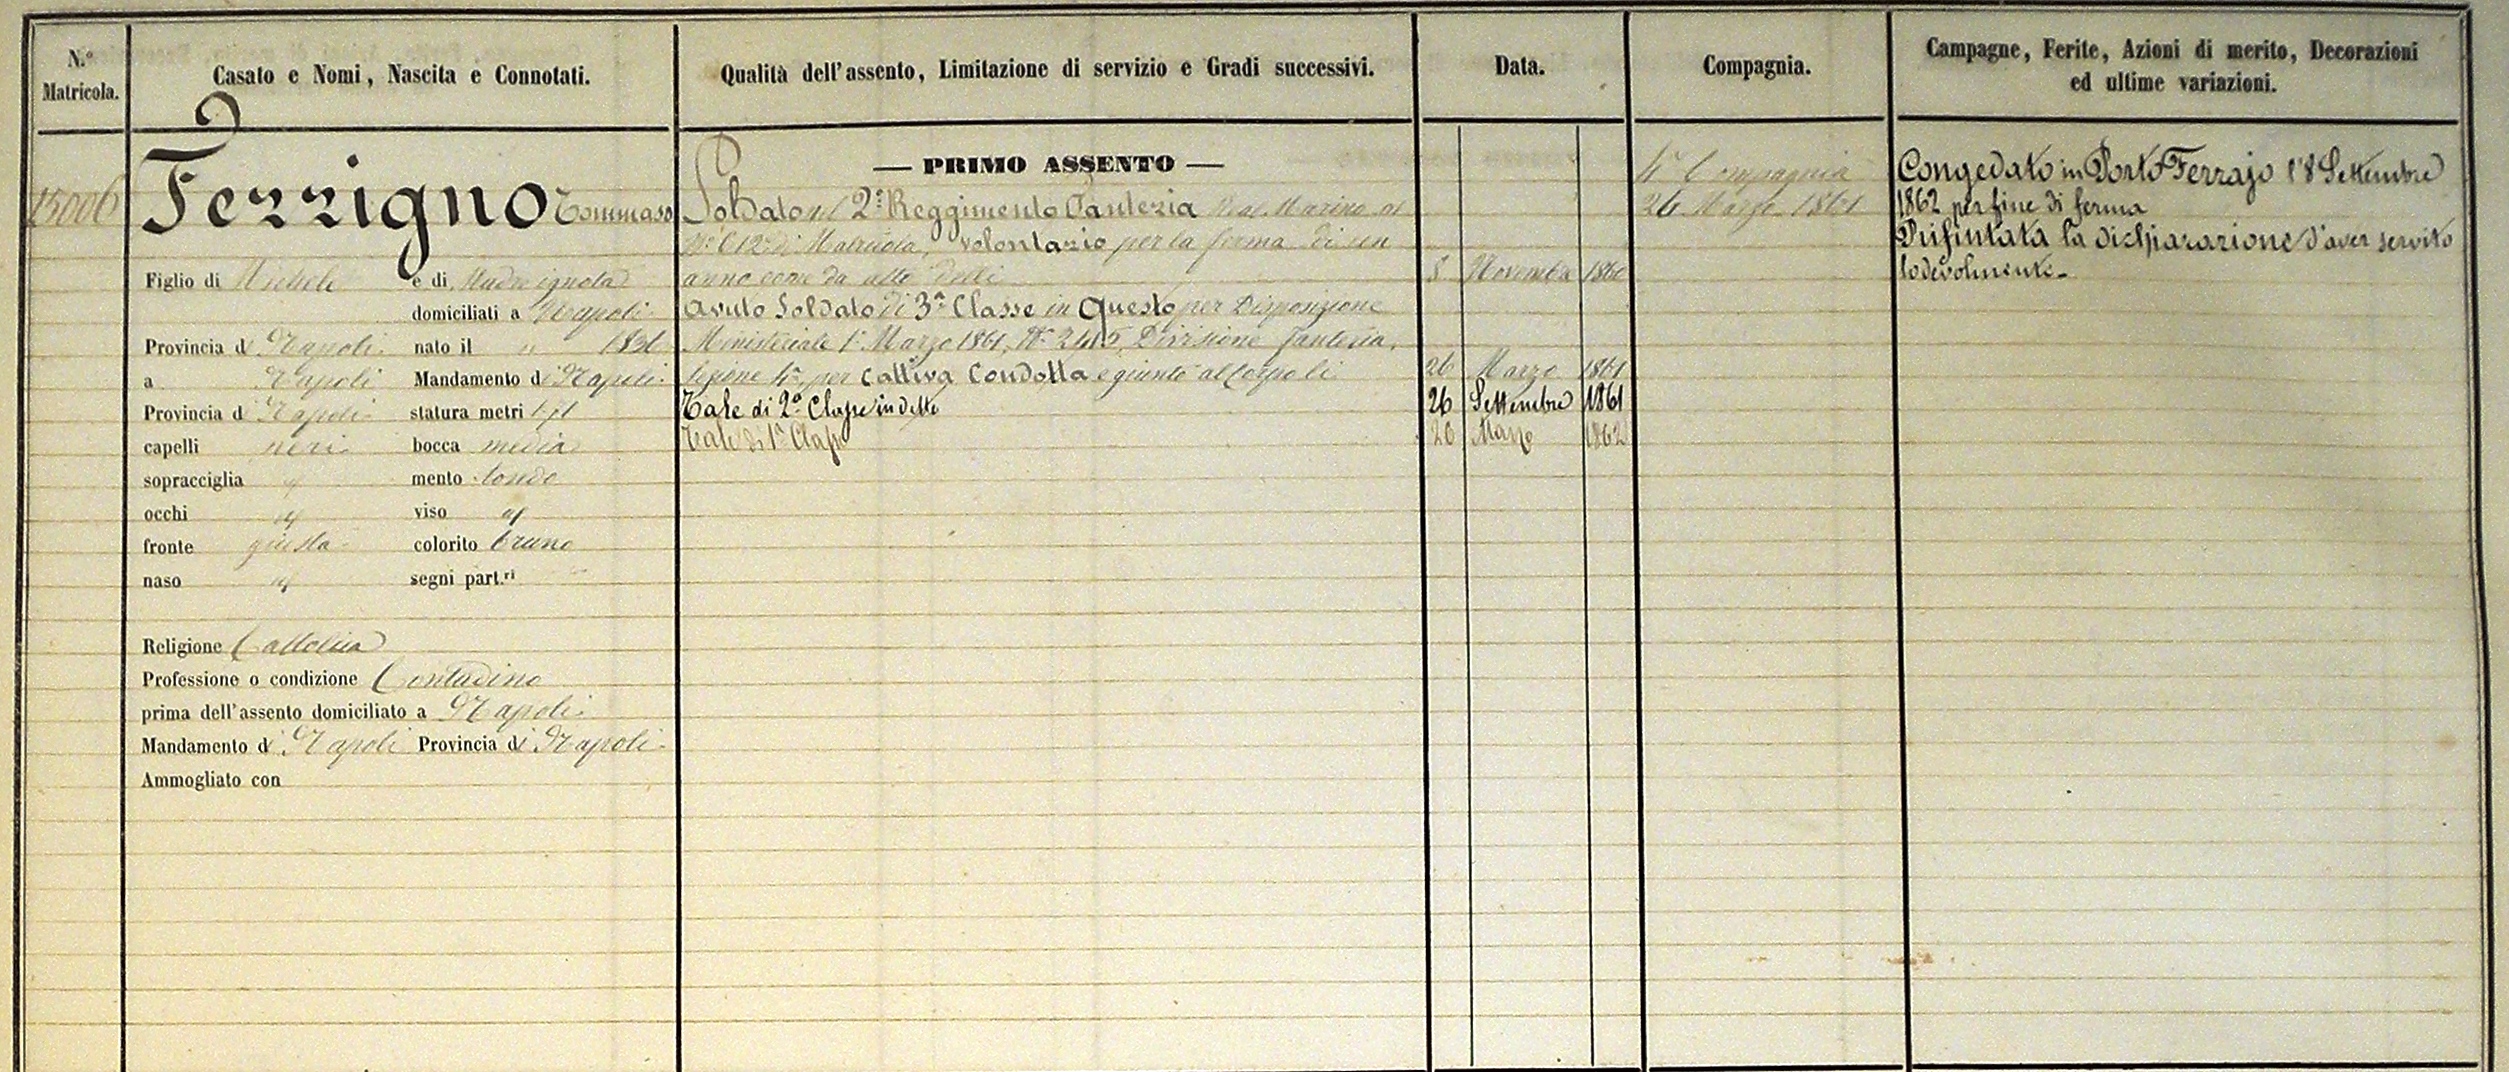 N.° Matricola.
Casato e Nomi, Nascita e Connotati.
Qualità dell'assento, Limitazione di servizio e Gradi successivi.
Data.
Compagnia.
Campagne, Ferite, Azioni di merito, Decorazioni
ed ultime variazioni.
15006
Ferrigno Tommaso
Figlio di Michele e di Madre ignota
domiciliati a Napoli
Provincia di Napoli nato il " 1836
a Napoli Mandamento di Napoli
Provincia di Napoli statura metri 1.71
capelli neri bocca media
sopracciglia id mento tondo
occhi id viso id
fronte giusta colorito bruno
naso id segni part.ri
Religione Cattolica
Professione o condizione Contadino
prima dell'assento domiciliato a Napoli
Mandamento di Napoli Provincia di Napoli
Ammogliato con
— PRIMO ASSENTO —
Soldato nel 2° Reggimento Fanteria Real Marina al
N° 612 di Matricola, volontario per la ferma di un
anno come da atto delli 8 Novembre 1860
Avuto Soldato di 3a Classe in Questo per Disposizione
Ministeriale 1° Marzo 1861, N° 2415, Divisione Fanteria,
Sezione 4a, per Cattiva Condotta e giunto al Corpo li 26 Marzo 1861
Tale di 2a Classe in detto 26 Settembre 1861
Tale di 1a Classe 26 Marzo 1862
4a Compagnia
26 Marzo 1861
Congedato in Porto Ferrajo l'8 Settembre
1862 per fine di ferma
Rifiutata la dichiarazione d'aver servito
lodevolmente.